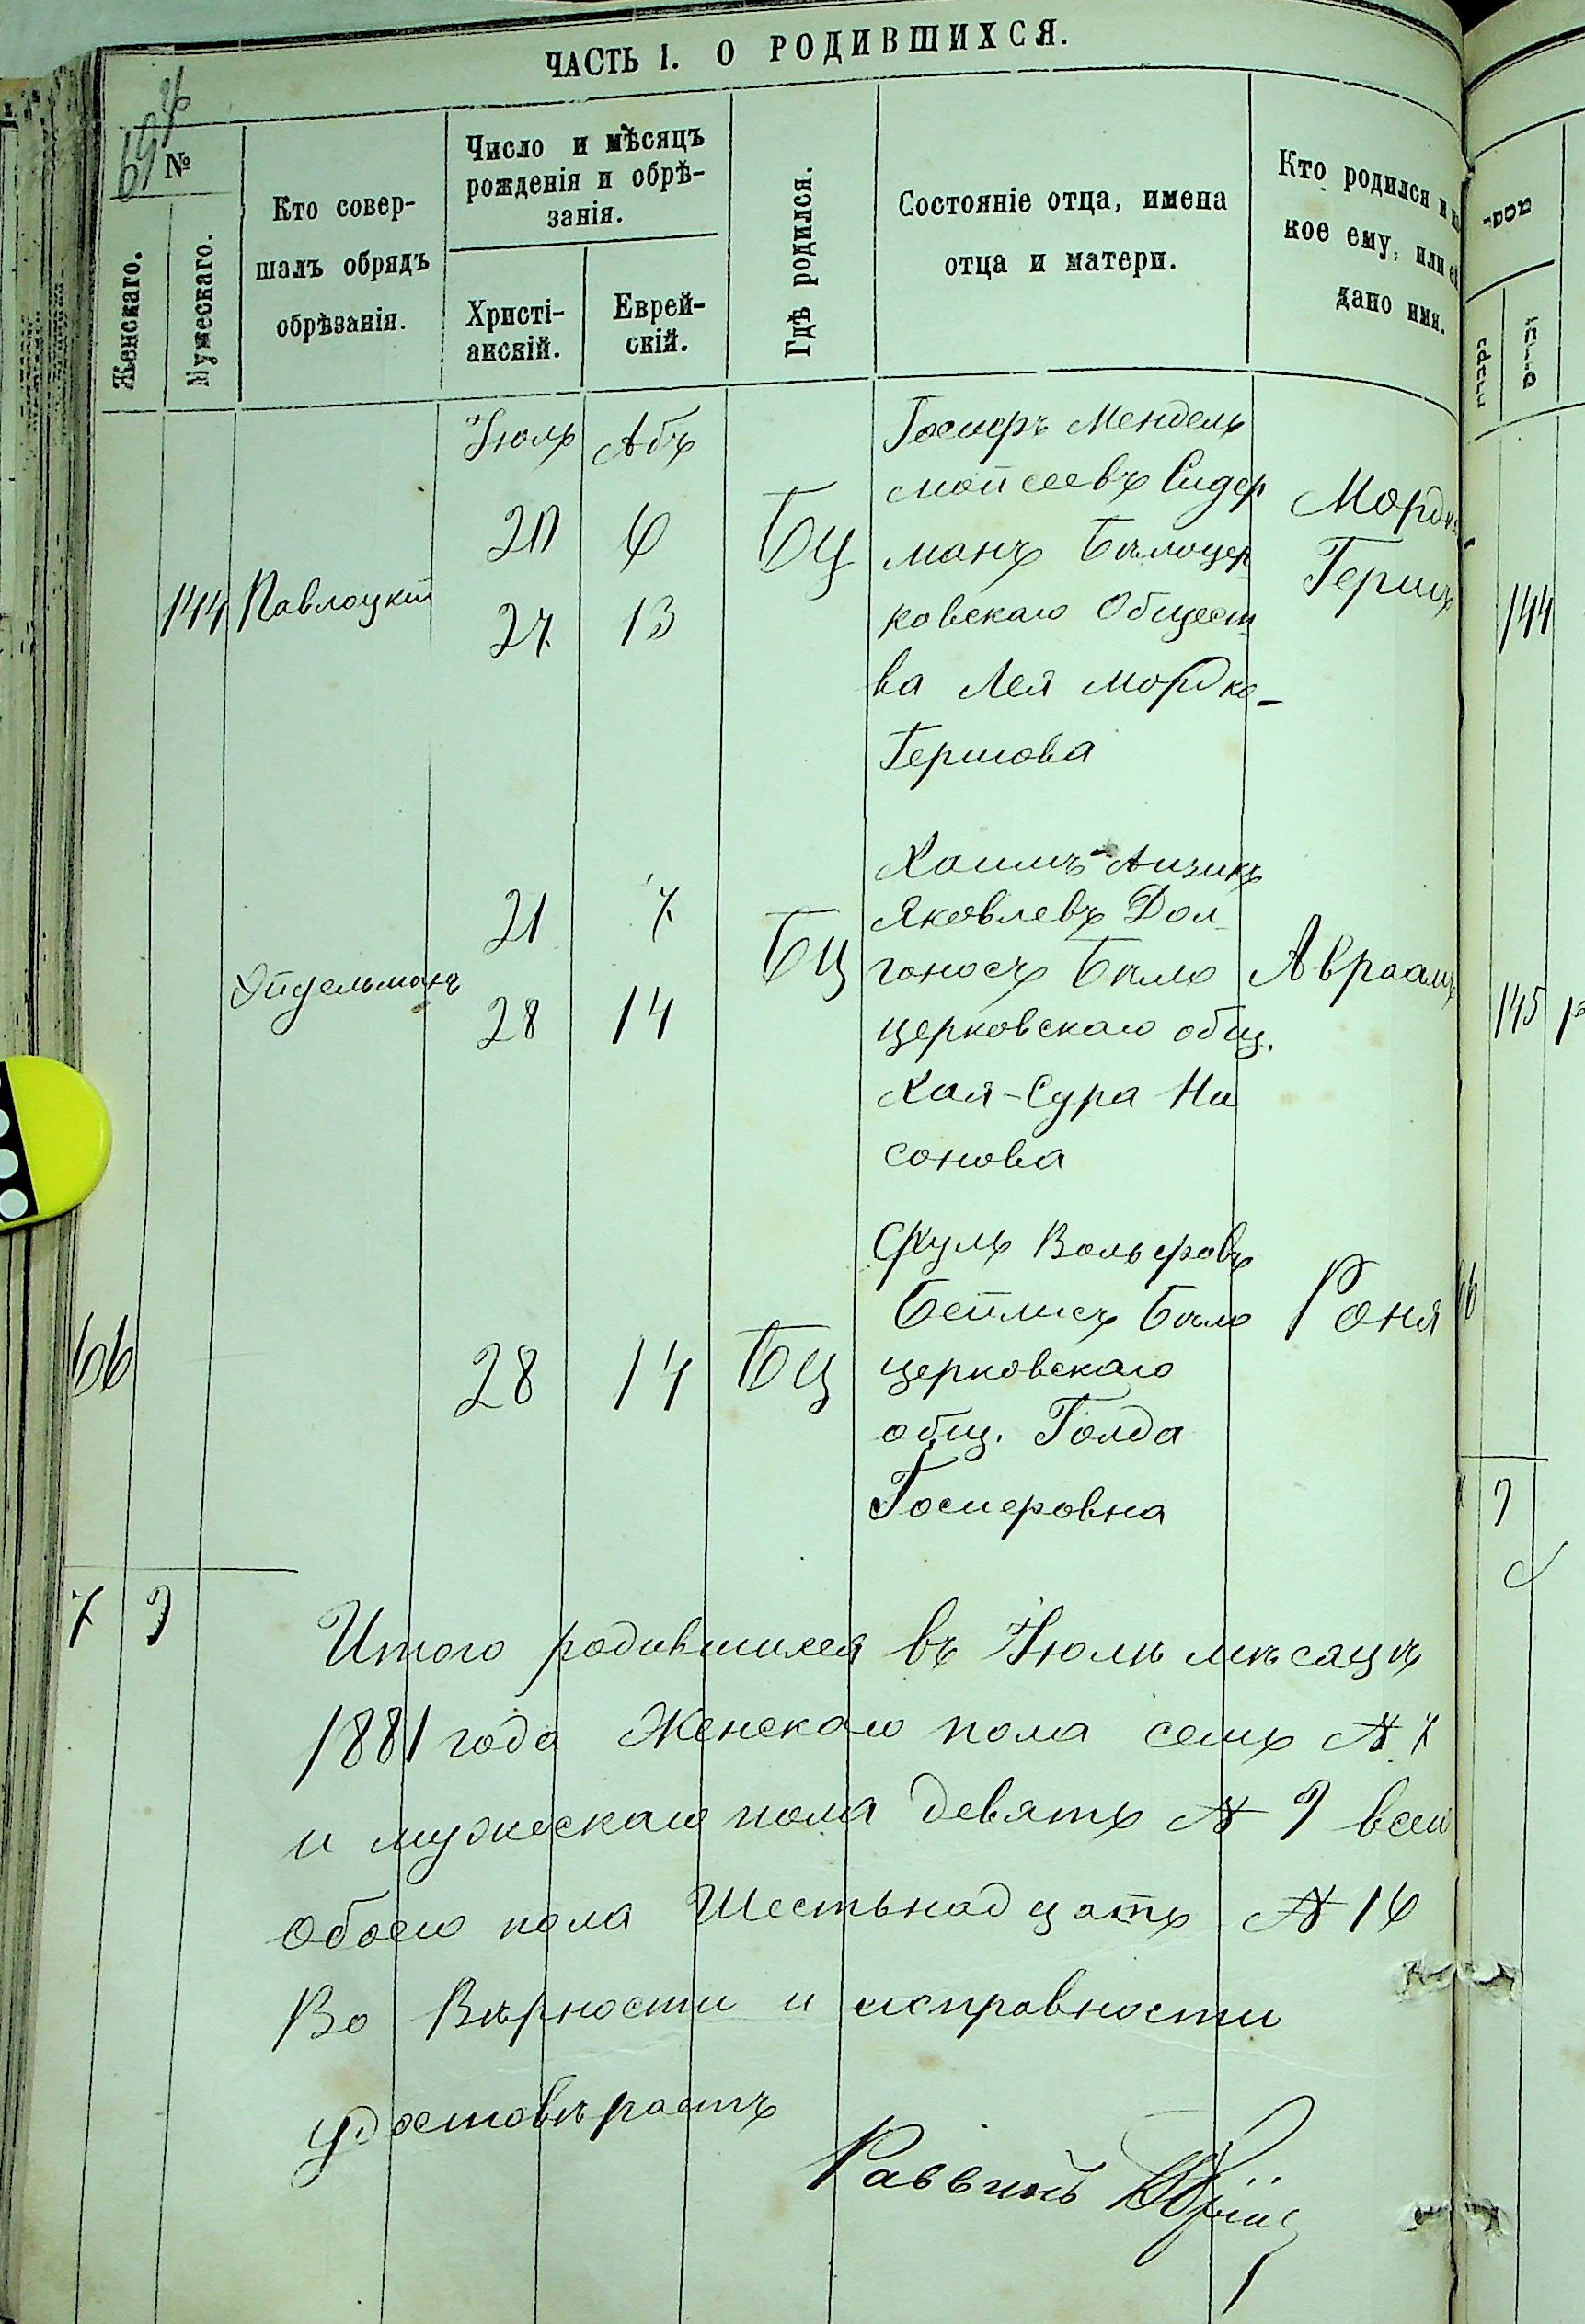 ЧАСТЬ I. О РОДИВШИХСЯ.
№
Женскаго.
Мужескаго.
Кто совер-
шалъ обрядъ
обрѣзанія.
Число и мѣсяцъ
рожденія и обрѣ-
занія.
Христі-
анскій.
Еврей-
скій.
Гдѣ родился.
Состояніе отца, имена
отца и матери.
Кто родился и
кое ему, или
дано имя.
Іюль Абъ
144 Павлоцкій
20 6
27 13
БЦ
Іосифъ Мендель
Мойсеевъ Сидер
манъ Бѣлоцер
ковскаго Общест
ва Лея Мордко-
Гершова
Мордко
Гершъ
144
Эйдельманъ
21 7
28 14
БЦ
Хаимъ-Аизикъ
Яковлевъ Дол
гоносъ Бѣло
церковскаго общ.
Хая-Сура Ни
сонова
Авраамъ
145
66
28 14 БЦ
Сруль Вольфовъ
Бейлисъ Бѣло
церковскаго
общ. Голда
Іосиеровна
Роня
7 9
Итого родившихся въ Іюлѣ мѣсяцѣ
1881 года Женскаго пола семь № 7
и мужескаго пола девять № 9 всего
обоего пола Шестьнадцать № 16
Во Вѣрности и исправности
удостовѣряетъ
Раввинъ